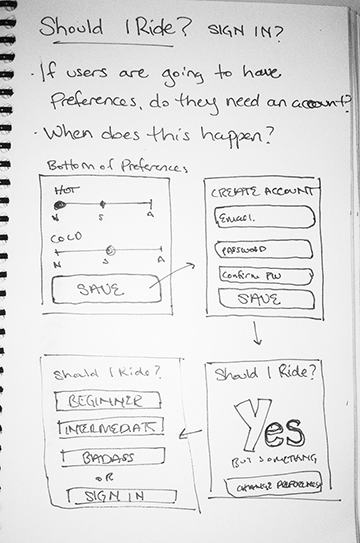 Should I Ride? SIGN IN?
· If users are going to have
Preferences, do they need an account?
· When does this happen?
Bottom of Preferences
HOT
N S A
COLD
N S A
SAVE
CREATE ACCOUNT
Email
PASSWORD
Confirm PW
SAVE
Should I Ride?
Yes
BUT SOMETHING
CHANGE PREFERENCES
Should I Ride?
BEGINNER
INTERMEDIATE
BADASS
OR
SIGN IN